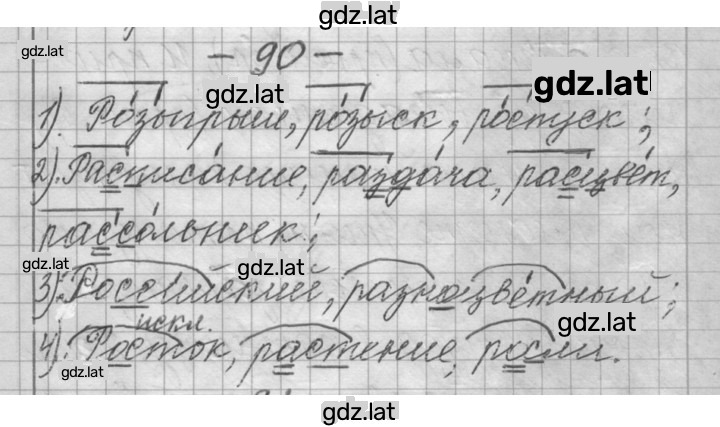 gdz.lat
gdz.lat
- 90 -
gdz.lat
gdz.lat
1). Розыгрыш, розыск, роспуск;
2). Расписание, раздача, расцвет,
рассольник;
gdz.lat
gdz.lat
3). Российский, разноцветный;
искл.
gdz.lat
4). Росток, растение, росли.
gdz.lat
gdz.lat